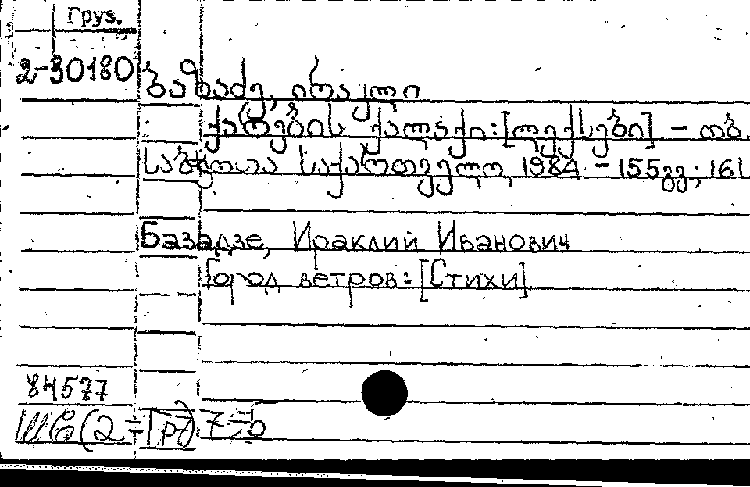 Груз.
2-30180
ბაზაძე, ირაკლი
ქარების ქალაქი: [ლექსები] - თბ.
საბჭოთა საქართველო, 1984. - 155გვ; 161
Базадзе, Ираклий Иванович
Город ветров: [Стихи]
84577